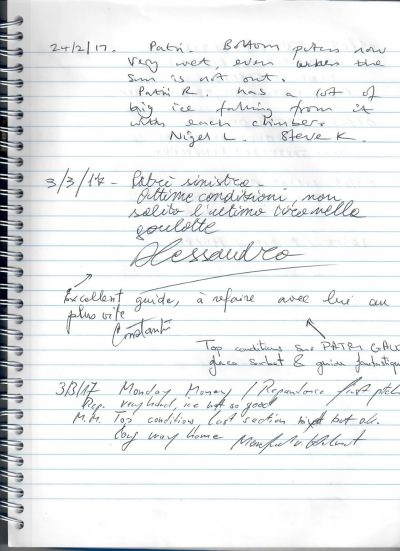 24/2/17. Patri. Bottom pitch now
very wet, even when the
sun is not out.
Patri R. has a lot of
big ice falling from it
with each climber.
Nigel L. Steve K.
3/3/17 - Patrì sinistro -
Ottime condizioni, non
salito l'ultimo tiro nella
goulotte
Alessandro
Excellent guide, à refaire avec lui au
plus vite
Top conditions sur PATRI GAU
glace sorbet & guide fantastique
3/3/17 Monday Money / Repentance first pitch
Rep. very hard, ice not so good
M.M. Top conditions last section but ok.
long way home